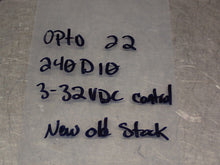 Opto 22
240D10
3-32VDC control
New old Stock